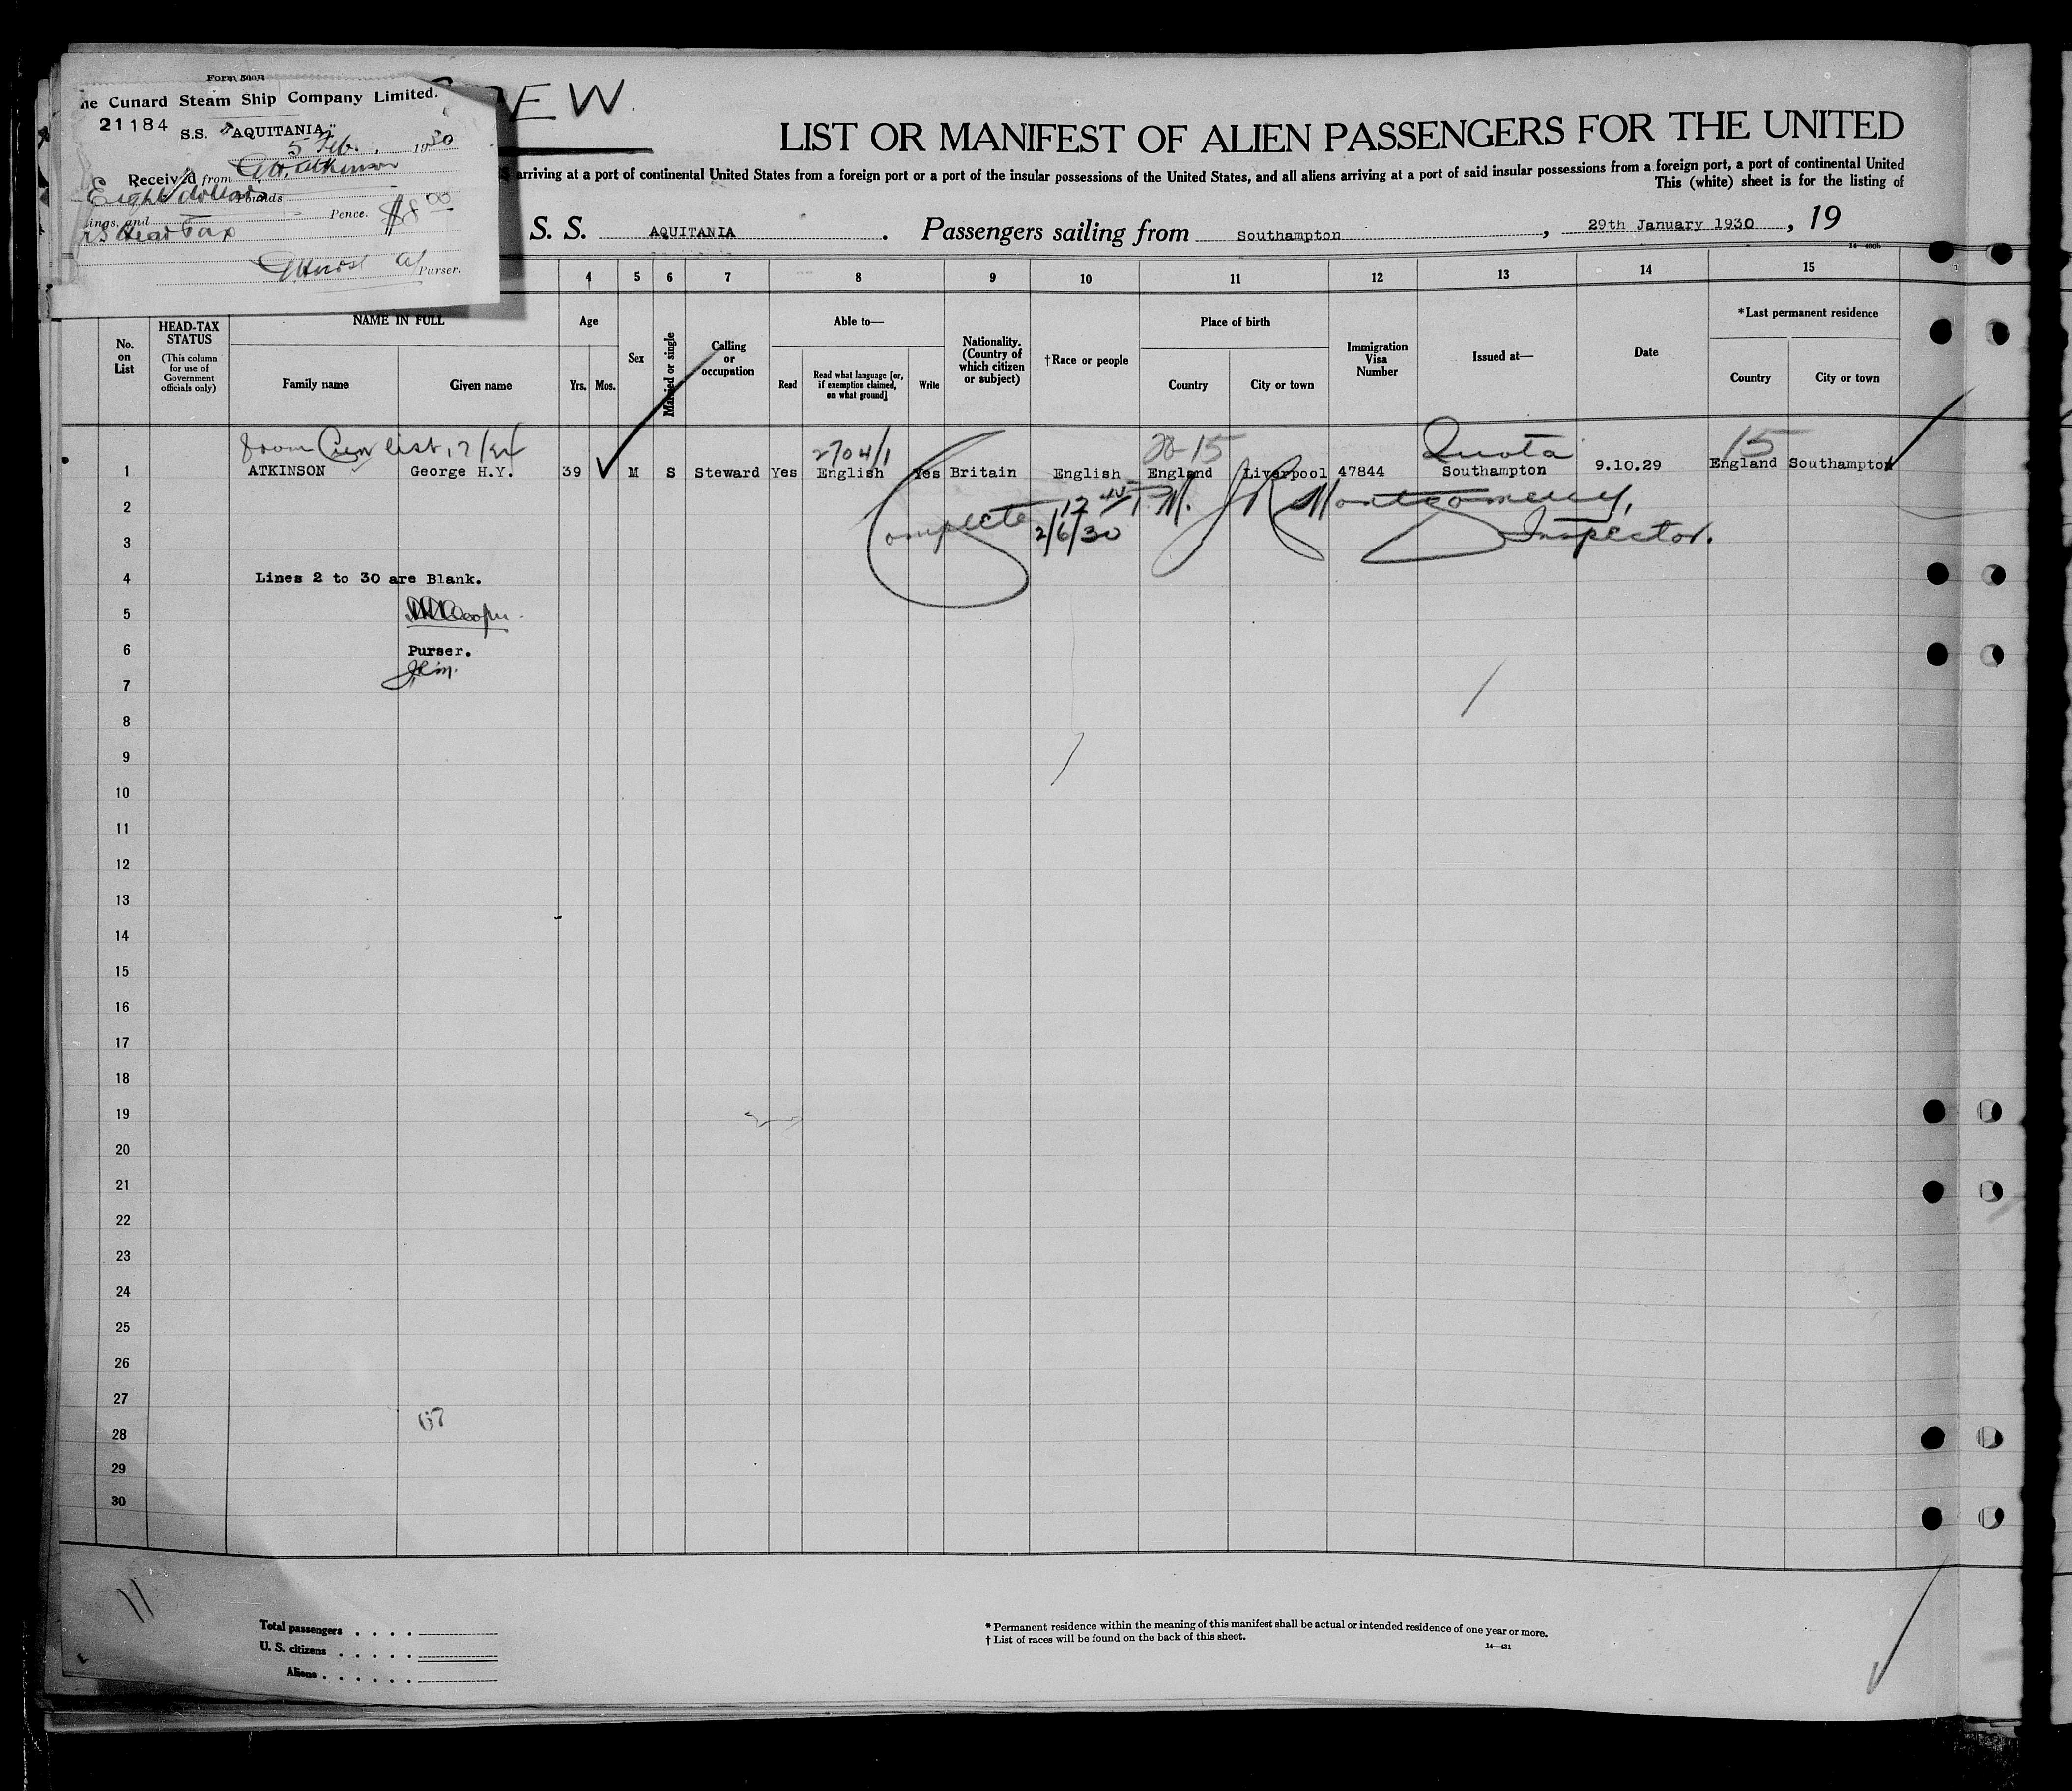 Form
he Cunard Steam Ship Company Limited.
21184 S.S. "AQUITANIA"
5 Feb. 1930
Received from G H. Atkinson
Eight dollars Pounds
ings, and Pence. $8 00
Head Tax
Purser.
EW.
LIST OR MANIFEST OF ALIEN PASSENGERS FOR THE UNITED
arriving at a port of continental United States from a foreign port or a port of the insular possessions of the United States, and all aliens arriving at a port of said insular possessions from a foreign port, a port of continental United
This (white) sheet is for the listing of
S. S. AQUITANIA . Passengers sailing from Southampton , 29th January 1930 , 19
4 5 6 7 8 9 10 11 12 13 14 15
No. on List
HEAD-TAX STATUS
(This column for use of Government officials only)
NAME IN FULL
Family name Given name
Age
Yrs. Mos.
Sex
Married or single
Calling or occupation
Able to—
Read
Read what language [or, if exemption claimed, on what ground]
Write
Nationality. (Country of which citizen or subject)
†Race or people
Place of birth
Country City or town
Immigration Visa Number
Issued at—
Date
*Last permanent residence
Country City or town
from list, 2704/1 15 Quota 15
1 ATKINSON George H.Y. 39 M S Steward Yes English Yes Britain English England Liverpool 47844 Southampton 9.10.29 England Southampton
2 Complete 12 M. J R Montgomery,
3 2/6/30 Inspector.
4 Lines 2 to 30 are Blank.
5
6 Purser.
7
8
9
10
11
12
13
14
15
16
17
18
19
20
21
22
23
24
25
26
27
67
28
29
30
11
Total passengers . . . .
U. S. citizens . . . . .
Aliens . . . . . .
* Permanent residence within the meaning of this manifest shall be actual or intended residence of one year or more.
† List of races will be found on the back of this sheet.
14—421